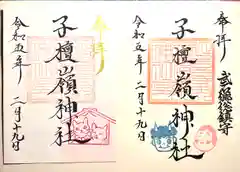 奉拝
武石総鎮守
子檀嶺神社
令和五年
二月十九日
奉拝
子檀嶺神社
令和五年
二月十九日